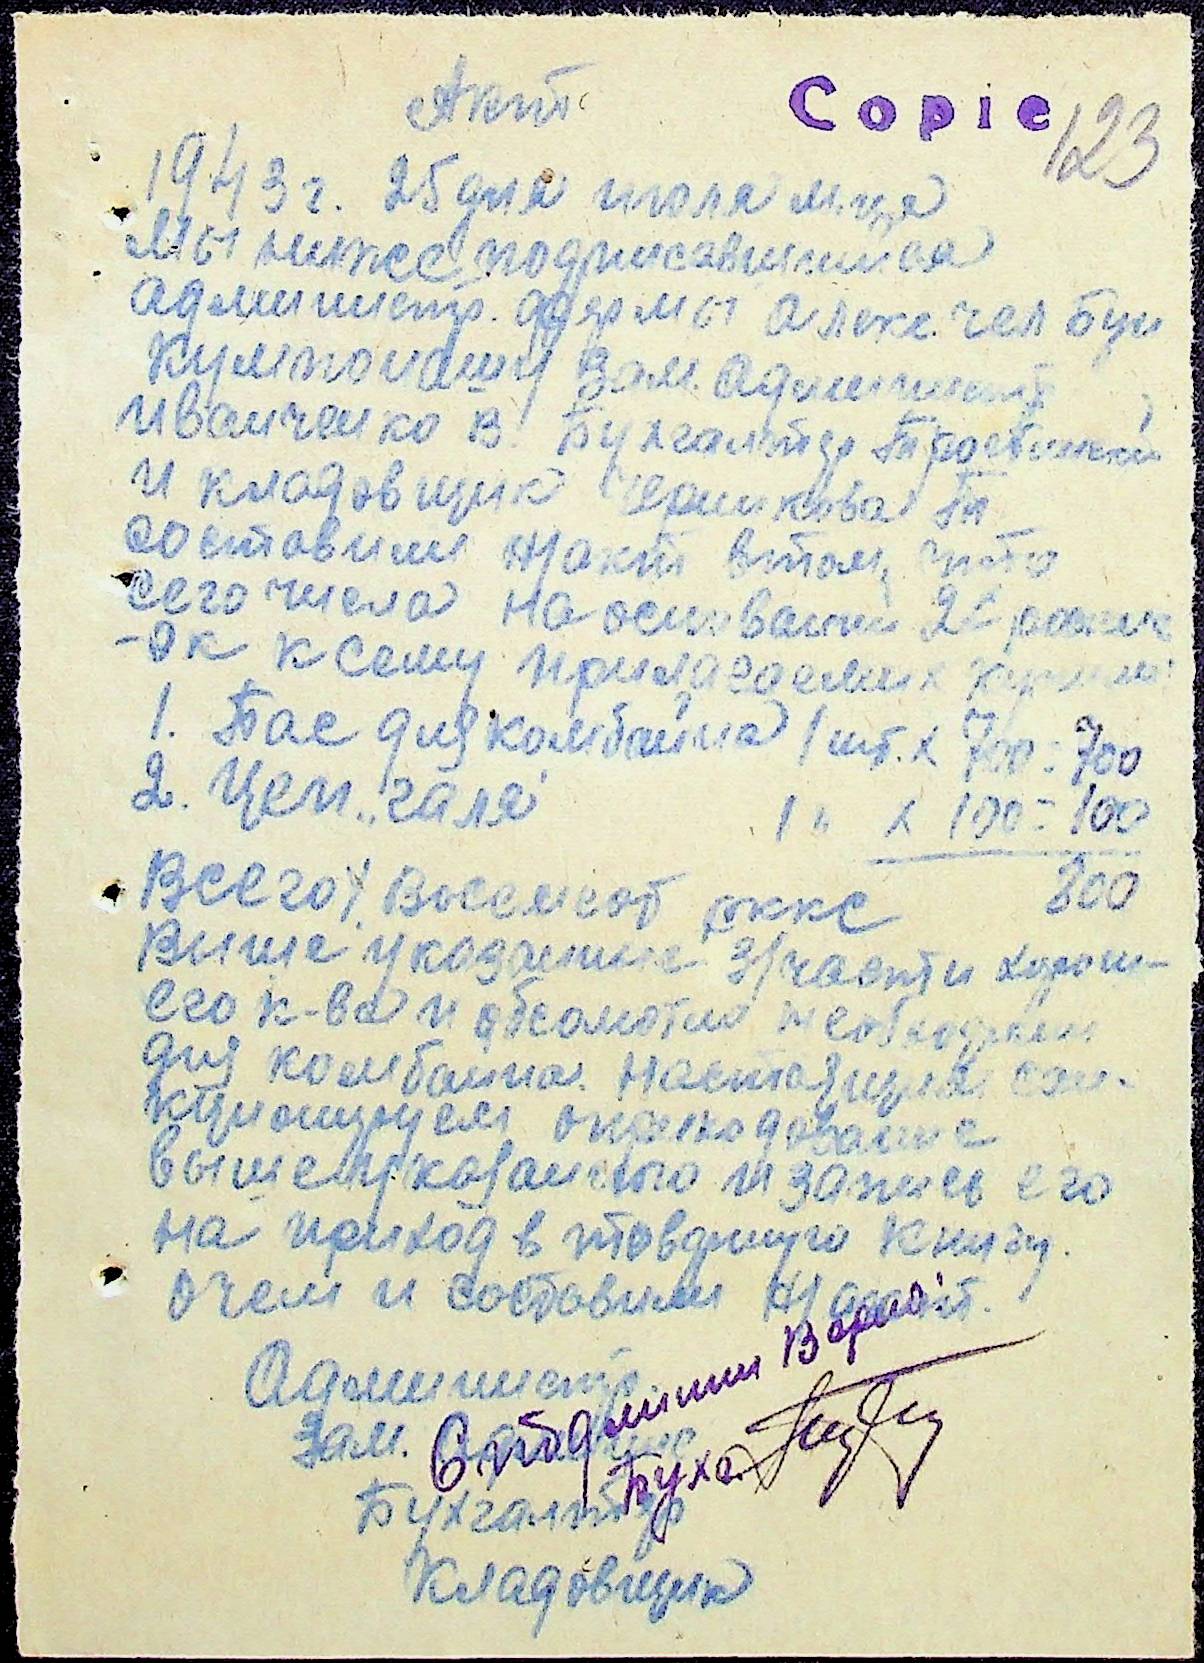 Акт
Copie
123
1943 г. 25 дня июля м-ца
Мы ниже подписавшиися
админстр. фермы Алекс. чел Бун
Кумпонашу Зам. Админстр
Иванченко В. Бухгалтер
и кладовщик Черникова
составили н/акт в том, что
сего числа на основании 2х
-ок к сему прилагаемых
1. Пас для комбайна 1 шт. х 700 = 700
2. Цепь „галя" 1 " х 100 = 100
800
Всего/. Восемсот рккс
Выше указанные з/части хорош-
его к-ва и обсолютно необходимы
для комбайна. Настоящим сан-
кционируем оприходование
вышеуказанного и запись его
на приход в товарную книгу.
о чем и составили н/акт.
Администр.
Зам.
С подлинным Верно:
Бухг.
Бухгалтер
Кладовщик